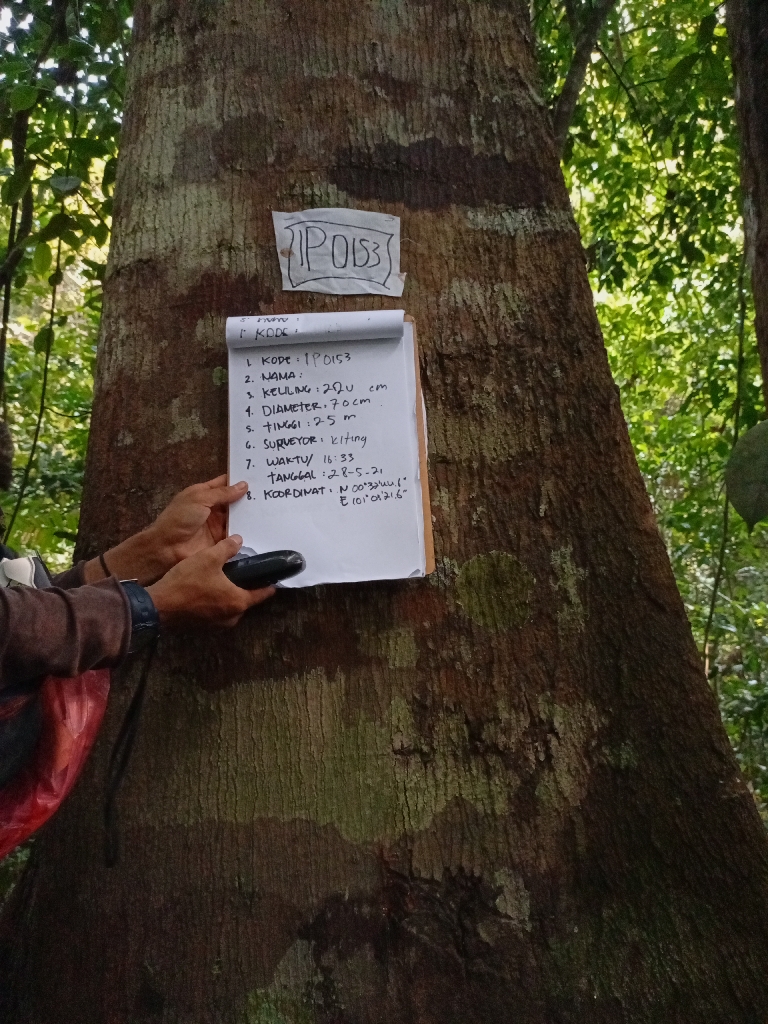 IPO153
1. KODE :
1. KODE : IPO153
2. NAMA :
3. KELILING : 220 cm
4. DIAMETER : 70 cm
5. TINGGI : 25 m
6. SURVEYOR : kiting
7. WAKTU/ 16:33
TANGGAL : 28-5-21
8. KOORDINAT : N 00°32'44.6"
E 101°01'21.6"